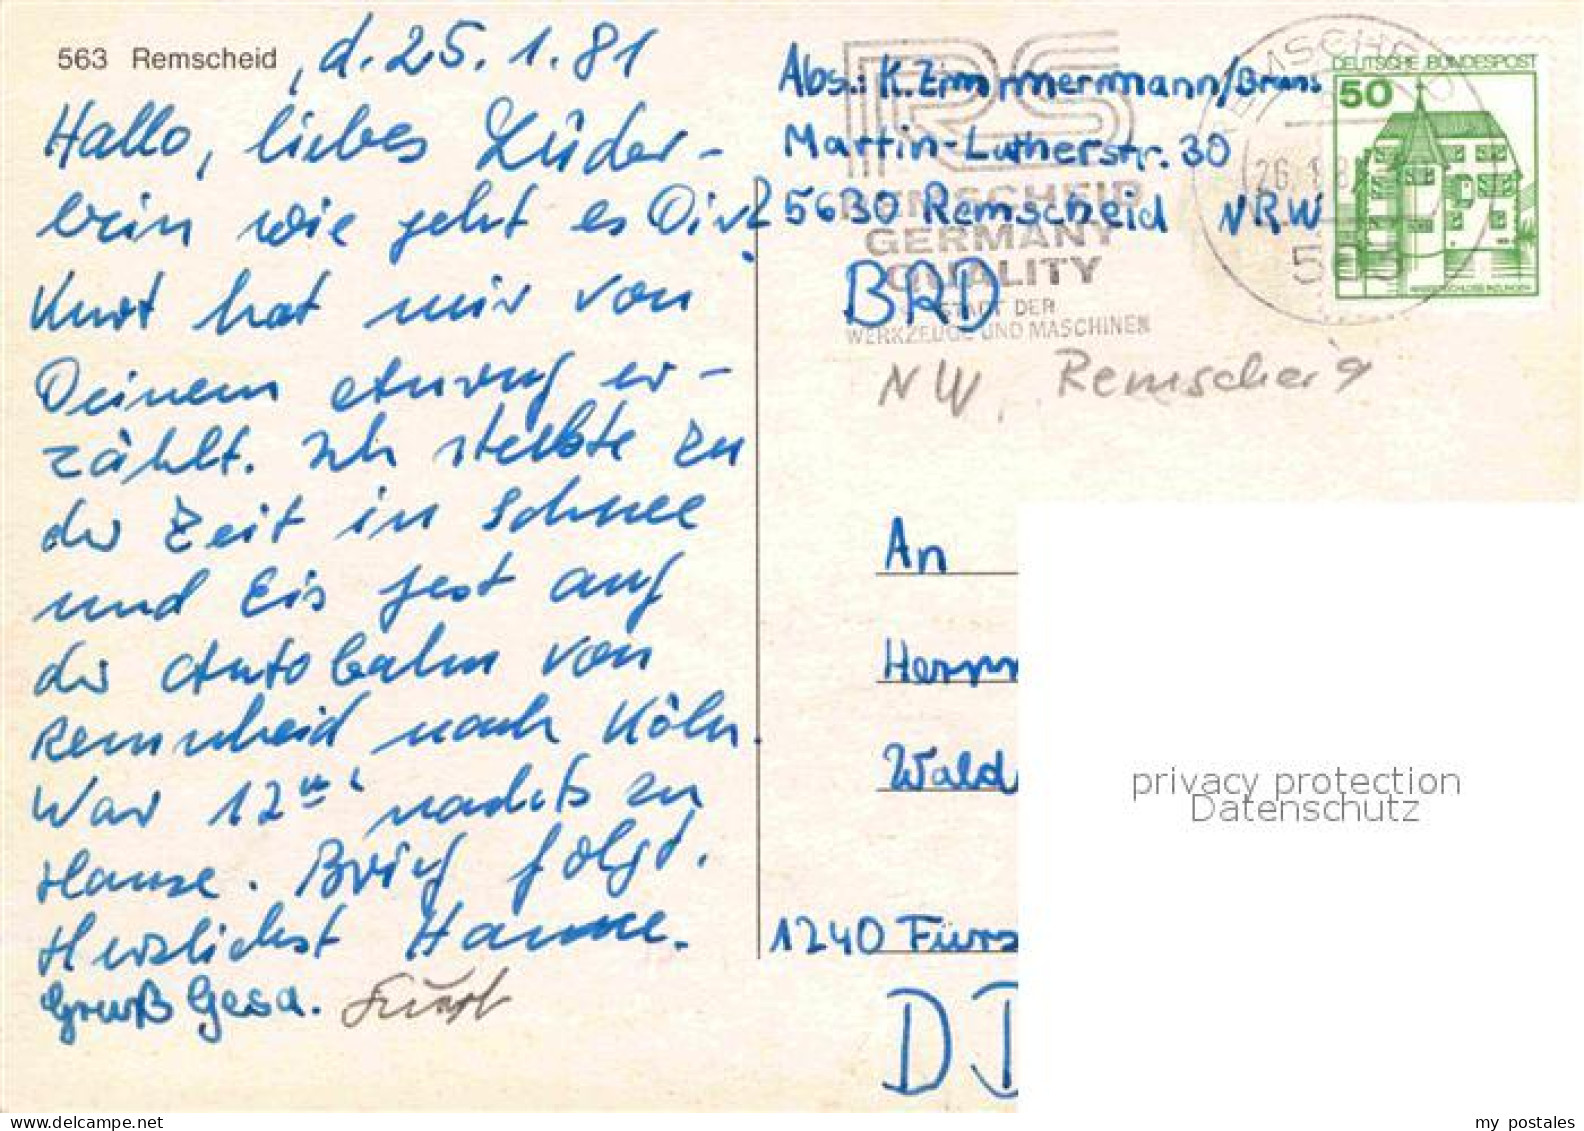 563 Remscheid, d. 25.1.81
Hallo, liebes Lüder-
lein wie geht es Dir?
Kurt hat mir von
Deinem Anruf er-
zählt. Ich steckte zu
der Zeit in Schnee
und Eis fest auf
der Autobahn von
Remscheid nach Köln.
War 12 nachts zu
Hause. Brief folgt.
Herzlichst Hanne.
Gruß Gesa. Kurt
Abs.: K. Zimmermann/Brans
Martin-Lutherstr. 30
5630 Remscheid NRW
BRD
RS
REMSCHEID
GERMANY
QUALITY
STADT DER
WERKZEUGE UND MASCHINEN
REMSCHEID
26.1.81
563
DEUTSCHE BUNDESPOST
50
WASSERSCHLOSS INZLINGEN
NW, Remscheid
An
Herrn
Wald
1240 Fürs
DD
privacy protection
Datenschutz
my postales